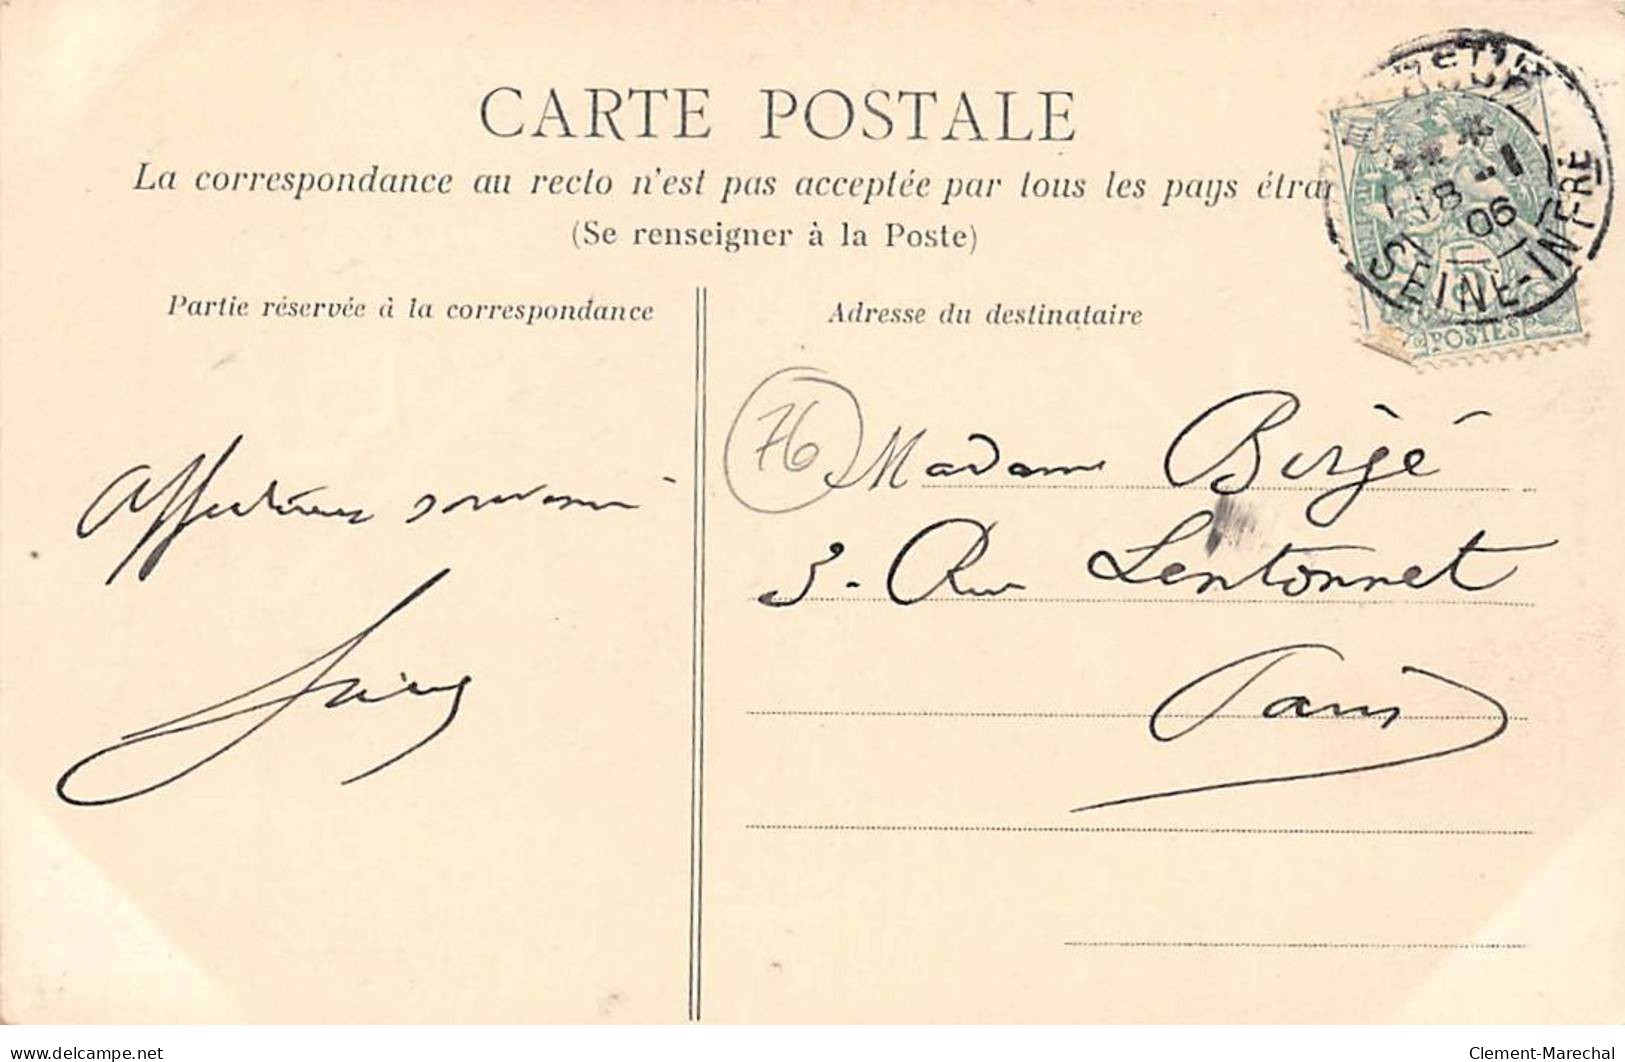 CARTE POSTALE
La correspondance au recto n'est pas acceptée par tous les pays étran
(Se renseigner à la Poste)
Partie réservée à la correspondance
Adresse du destinataire
18 -1
06
SEINE-INFRE
POSTES
76
Madame Bergé
3 - Rue Lentonnet
Paris
Affectueux souvenir
delcampe.net
Clement-Marechal